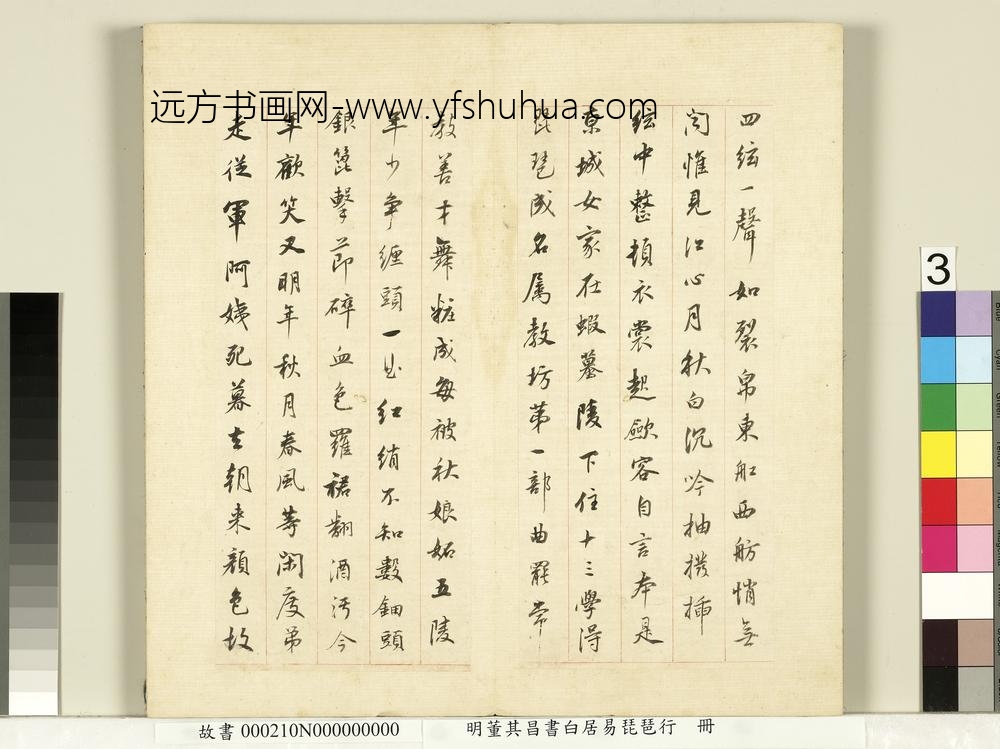 远方书画网-www.yfshuhua.com
四絃一聲如裂帛東舩西舫悄無
言惟見江心月秋白沉吟抽撥插
絃中整頓衣裳起歛容自言本是
京城女家在蝦蟇陵下住十三學得
琵琶成名属教坊苐一部曲罷常
教善才舞粧成每被秋娘妬五陵
年少争纏頭一曲紅綃不知數鈿頭
銀篦擊莭碎血色羅裙翻酒污今
年歡笑又明年秋月春風等閑度弟
走従軍阿姨死暮去朝来顔色故
故書 000210N000000000 明董其昌書白居易琵琶行 冊
3